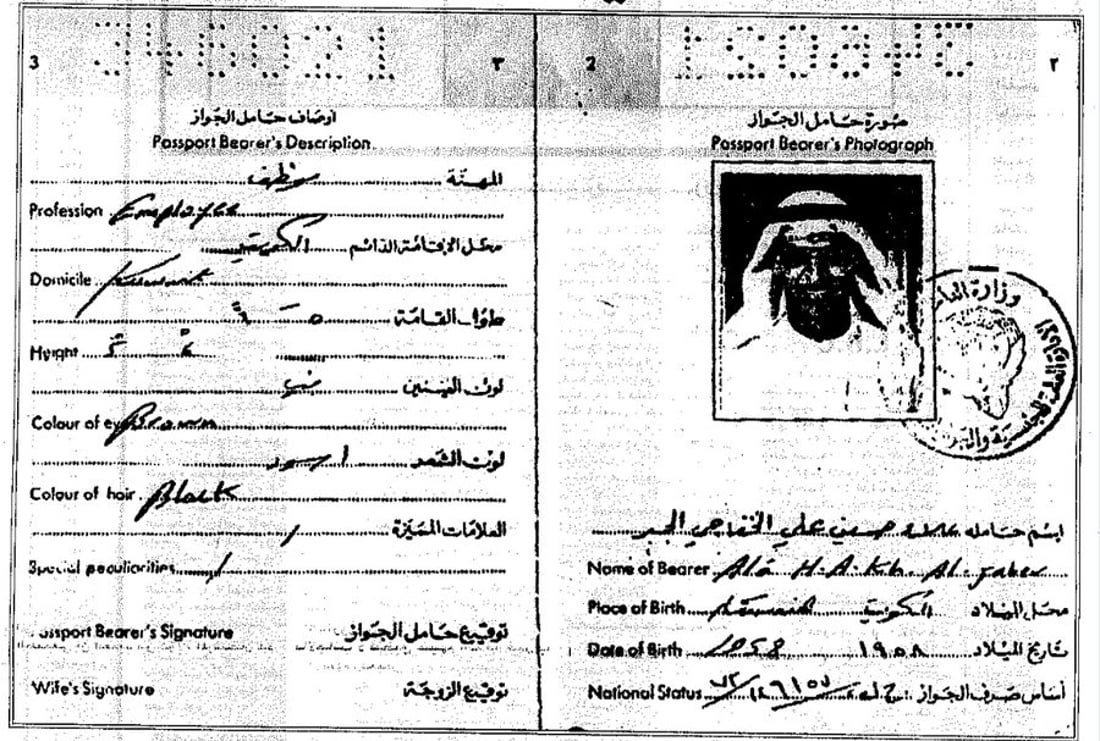 3 ٣
أوصاف حامل الجواز
Passport Bearer's Description
المهنة موظف
Profession Employee
محل الإقامة الدائم الكويت
Domicile Kuwait
طول القامة
Height
لون العينين بني
Colour of eyes Brown
لون الشعر اسود
Colour of hair Black
العلامات المميزة /
Special peculiarities /
توقيع حامل الجواز
Passport Bearer's Signature
توقيع الزوجة
Wife's Signature
2 ٢
صورة حامل الجواز
Passport Bearer's Photograph
وزارة
اسم حامله علاء حسين علي الخفاجي الجبر
Name of Bearer Ala H.A.Kh. Al-Jaber
محل الميلاد الكويت
Place of Birth Kuwait
تاريخ الميلاد ١٩٥٨
Date of Birth 1958
أساس صرف الجواز
National Status